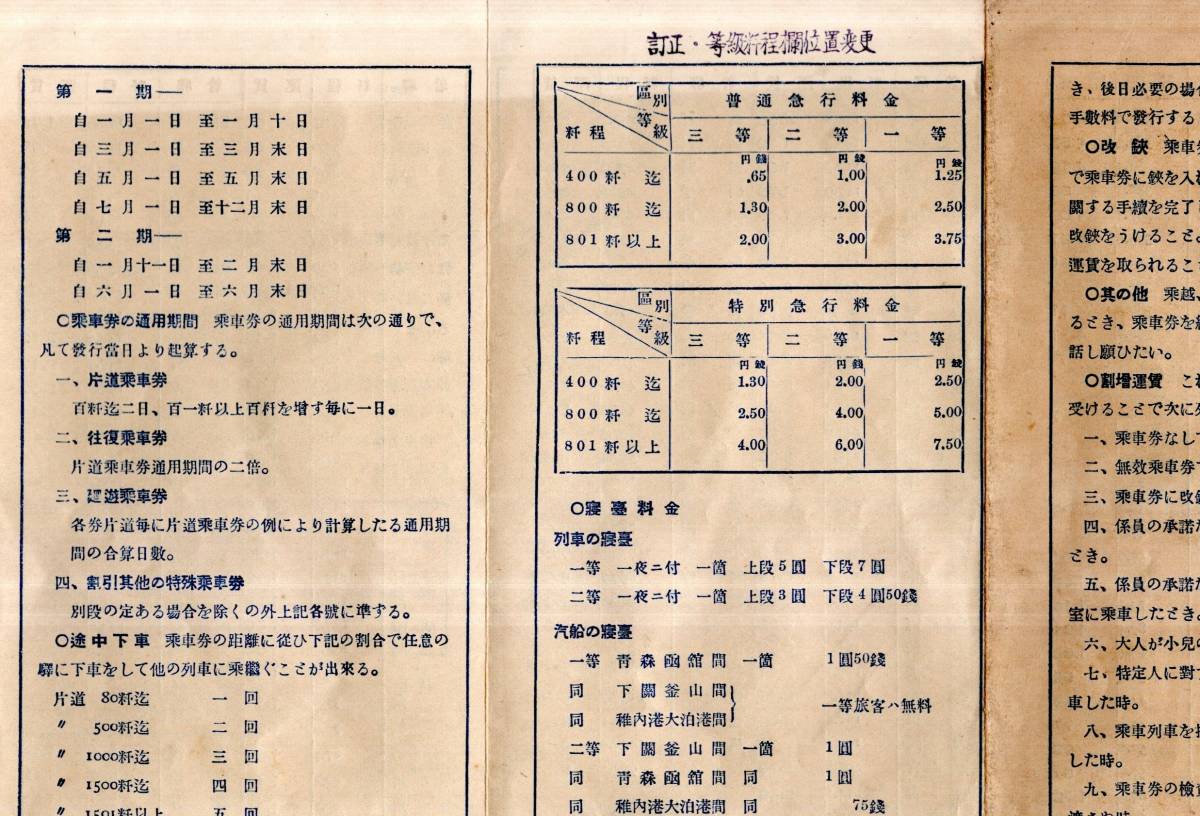 第一期──
自一月一日 至一月十日
自三月一日 至三月末日
自五月一日 至五月末日
自七月一日 至十二月末日
第二期──
自一月十一日 至二月末日
自六月一日 至六月末日
○乘車券の通用期間 乘車券の通用期間は次の通りで、
凡て發行當日より起算する。
一、片道乘車券
百粁迄二日、百一粁以上百粁を増す毎に一日。
二、往復乘車券
片道乘車券通用期間の二倍。
三、廻遊乘車券
各券片道毎に片道乘車券の例により計算したる通用期
間の合算日數。
四、割引其他の特殊乘車券
別段の定ある場合を除くの外上記各號に準ずる。
○途中下車 乘車券の距離に從ひ下記の割合で任意の
驛に下車をして他の列車に乘繼ぐことが出來る。
片道 80粁迄 一回
〃 500粁迄 二回
〃 1000粁迄 三回
〃 1500粁迄 四回
〃 1501粁以上 五回
訂正・等級粁程欄位置変更
區別 普通急行料金
等級
粁程 三等 二等 一等
円錢 円錢 円錢
400粁迄 .65 1.00 1.25
800粁迄 1.30 2.00 2.50
801粁以上 2.00 3.00 3.75
區別 特別急行料金
等級
粁程 三等 二等 一等
円錢 円錢 円錢
400粁迄 1.30 2.00 2.50
800粁迄 2.50 4.00 5.00
801粁以上 4.00 6.00 7.50
○寢臺料金
列車の寢臺
一等 一夜ニ付 一箇 上段5圓 下段7圓
二等 一夜ニ付 一箇 上段3圓 下段4圓50錢
汽船の寢臺
一等 青森函館間 一箇 1圓50錢
同 下關釜山間
一等旅客ハ無料
同 稚內港大泊港間
二等 下關釜山間 一箇 1圓
同 青森函館間 同 1圓
同 稚內港大泊港間 同 75錢
き、後日必要の場合
手數料で發行する
○改鋏 乘車券
で乘車券に鋏を入れ
關する手續を完了し
改鋏をうけること。
運賃を取られるこ
○其の他 乘越、
るとき、乘車券を
話し願ひたい。
○割增運賃 これ
受けることで次に列
一、乘車券なして
二、無效乘車券で
三、乘車券に改鋏
四、係員の承諾な
とき。
五、係員の承諾な
室に乘車したとき。
六、大人が小兒の
七、特定人に對す
車した時。
八、乘車列車を指
した時。
九、乘車券の檢査